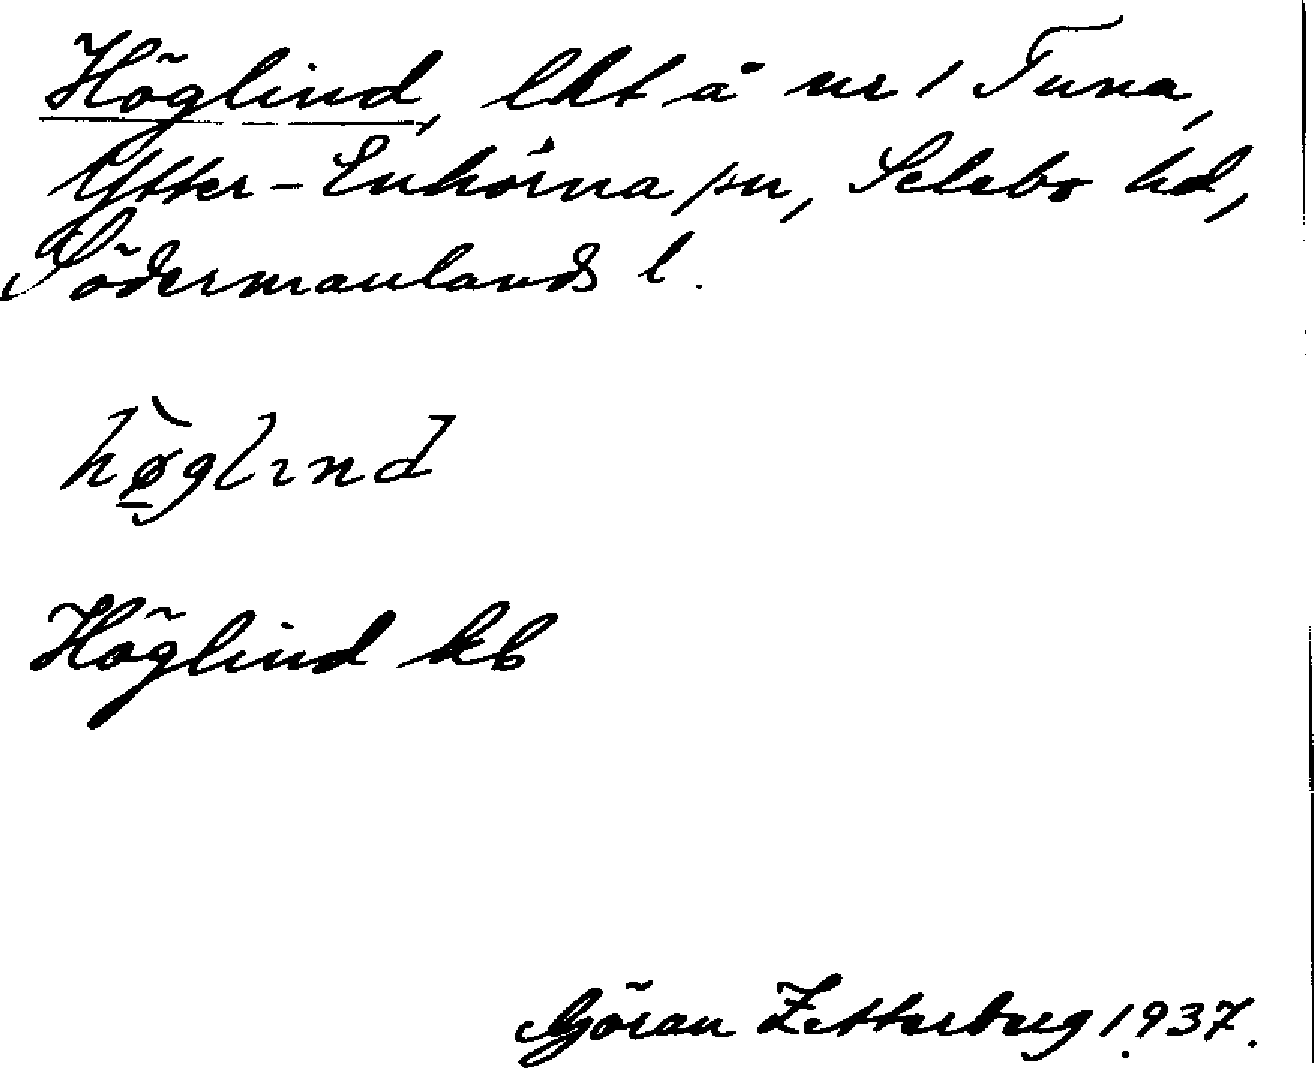 Höglind, lht å nr 1 Tuna,
Ytter-Enhörna sn, Selebo hd,
Södermanlands l.
hø̀glɪnd
Höglind kb
Göran Zetterberg 1937.